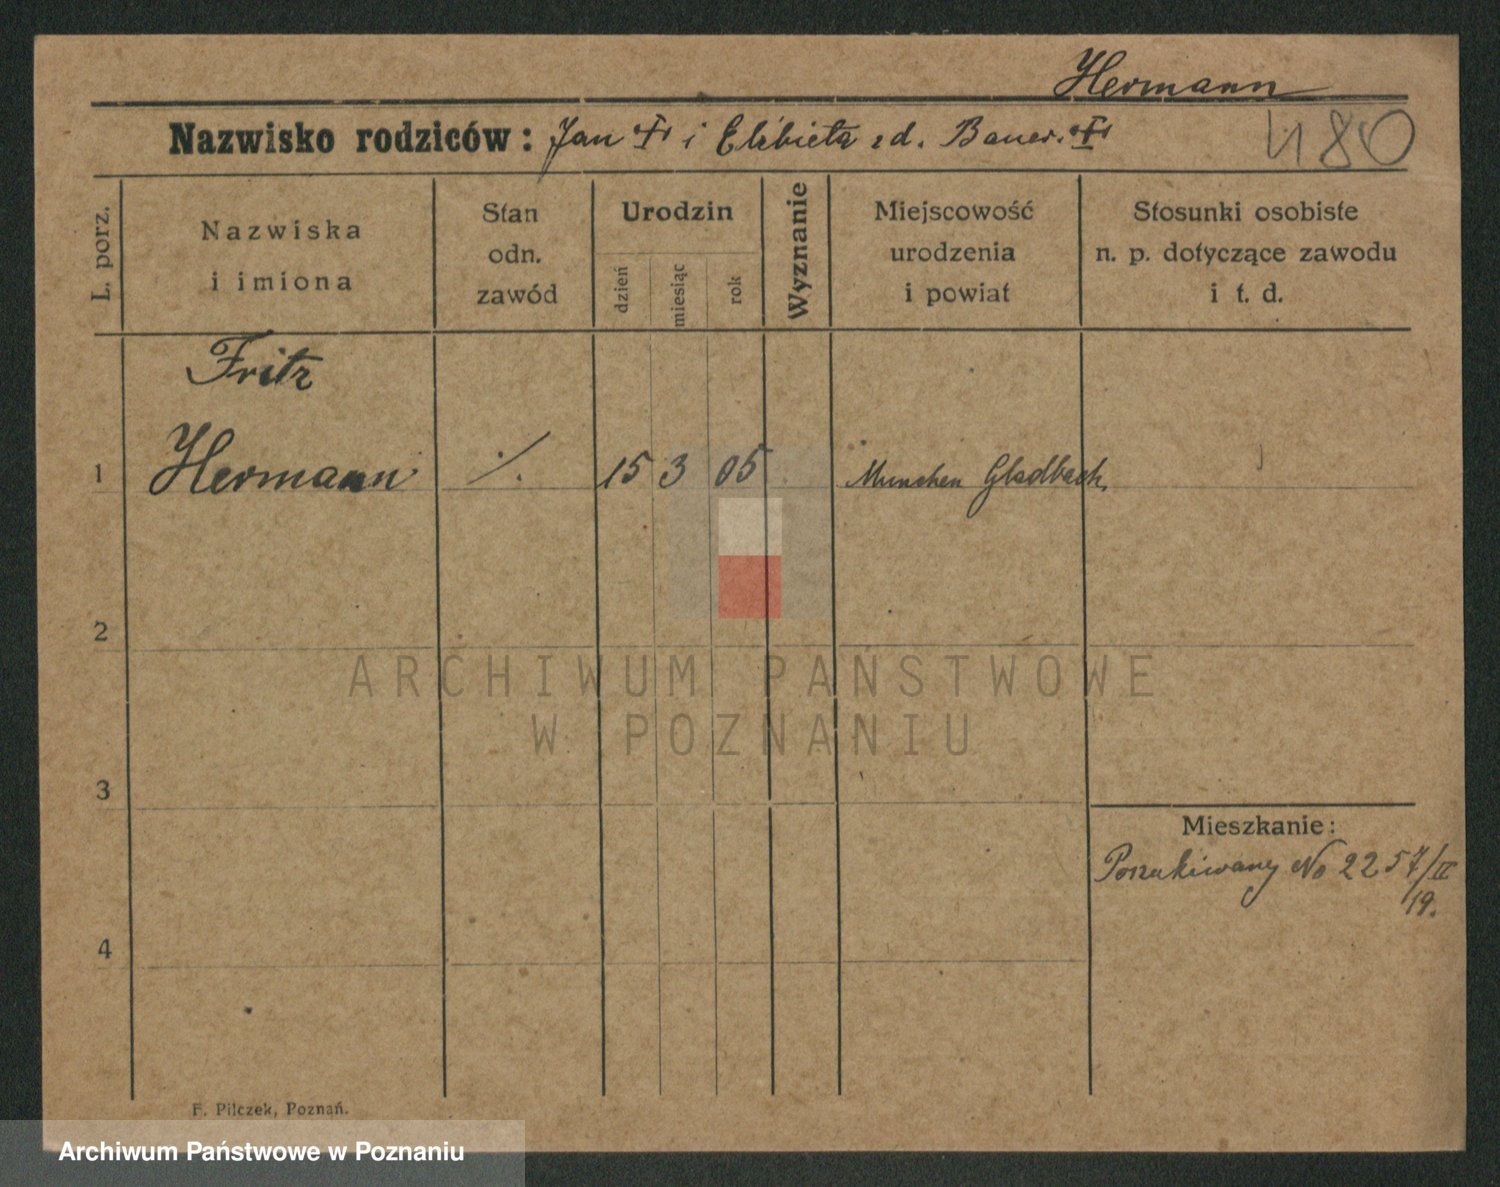 Hermann
Nazwisko rodziców: Jan i Elżbieta z d. Bauer.
480
L. porz.
Nazwiska
i imiona
Stan
odn.
zawód
Urodzin
dzień
miesiąc
rok
Wyznanie
Miejscowość
urodzenia
i powiat
Stosunki osobiste
n. p. dotyczące zawodu
i t. d.
Fritz
1 Hermann ./. 15 3 05 Munchen Gladbach,
2
3
Mieszkanie:
Poszukiwany No 2257/II
19.
4
F. Pilczek, Poznań.
ARCHIWUM PAŃSTWOWE
W POZNANIU
Archiwum Państwowe w Poznaniu